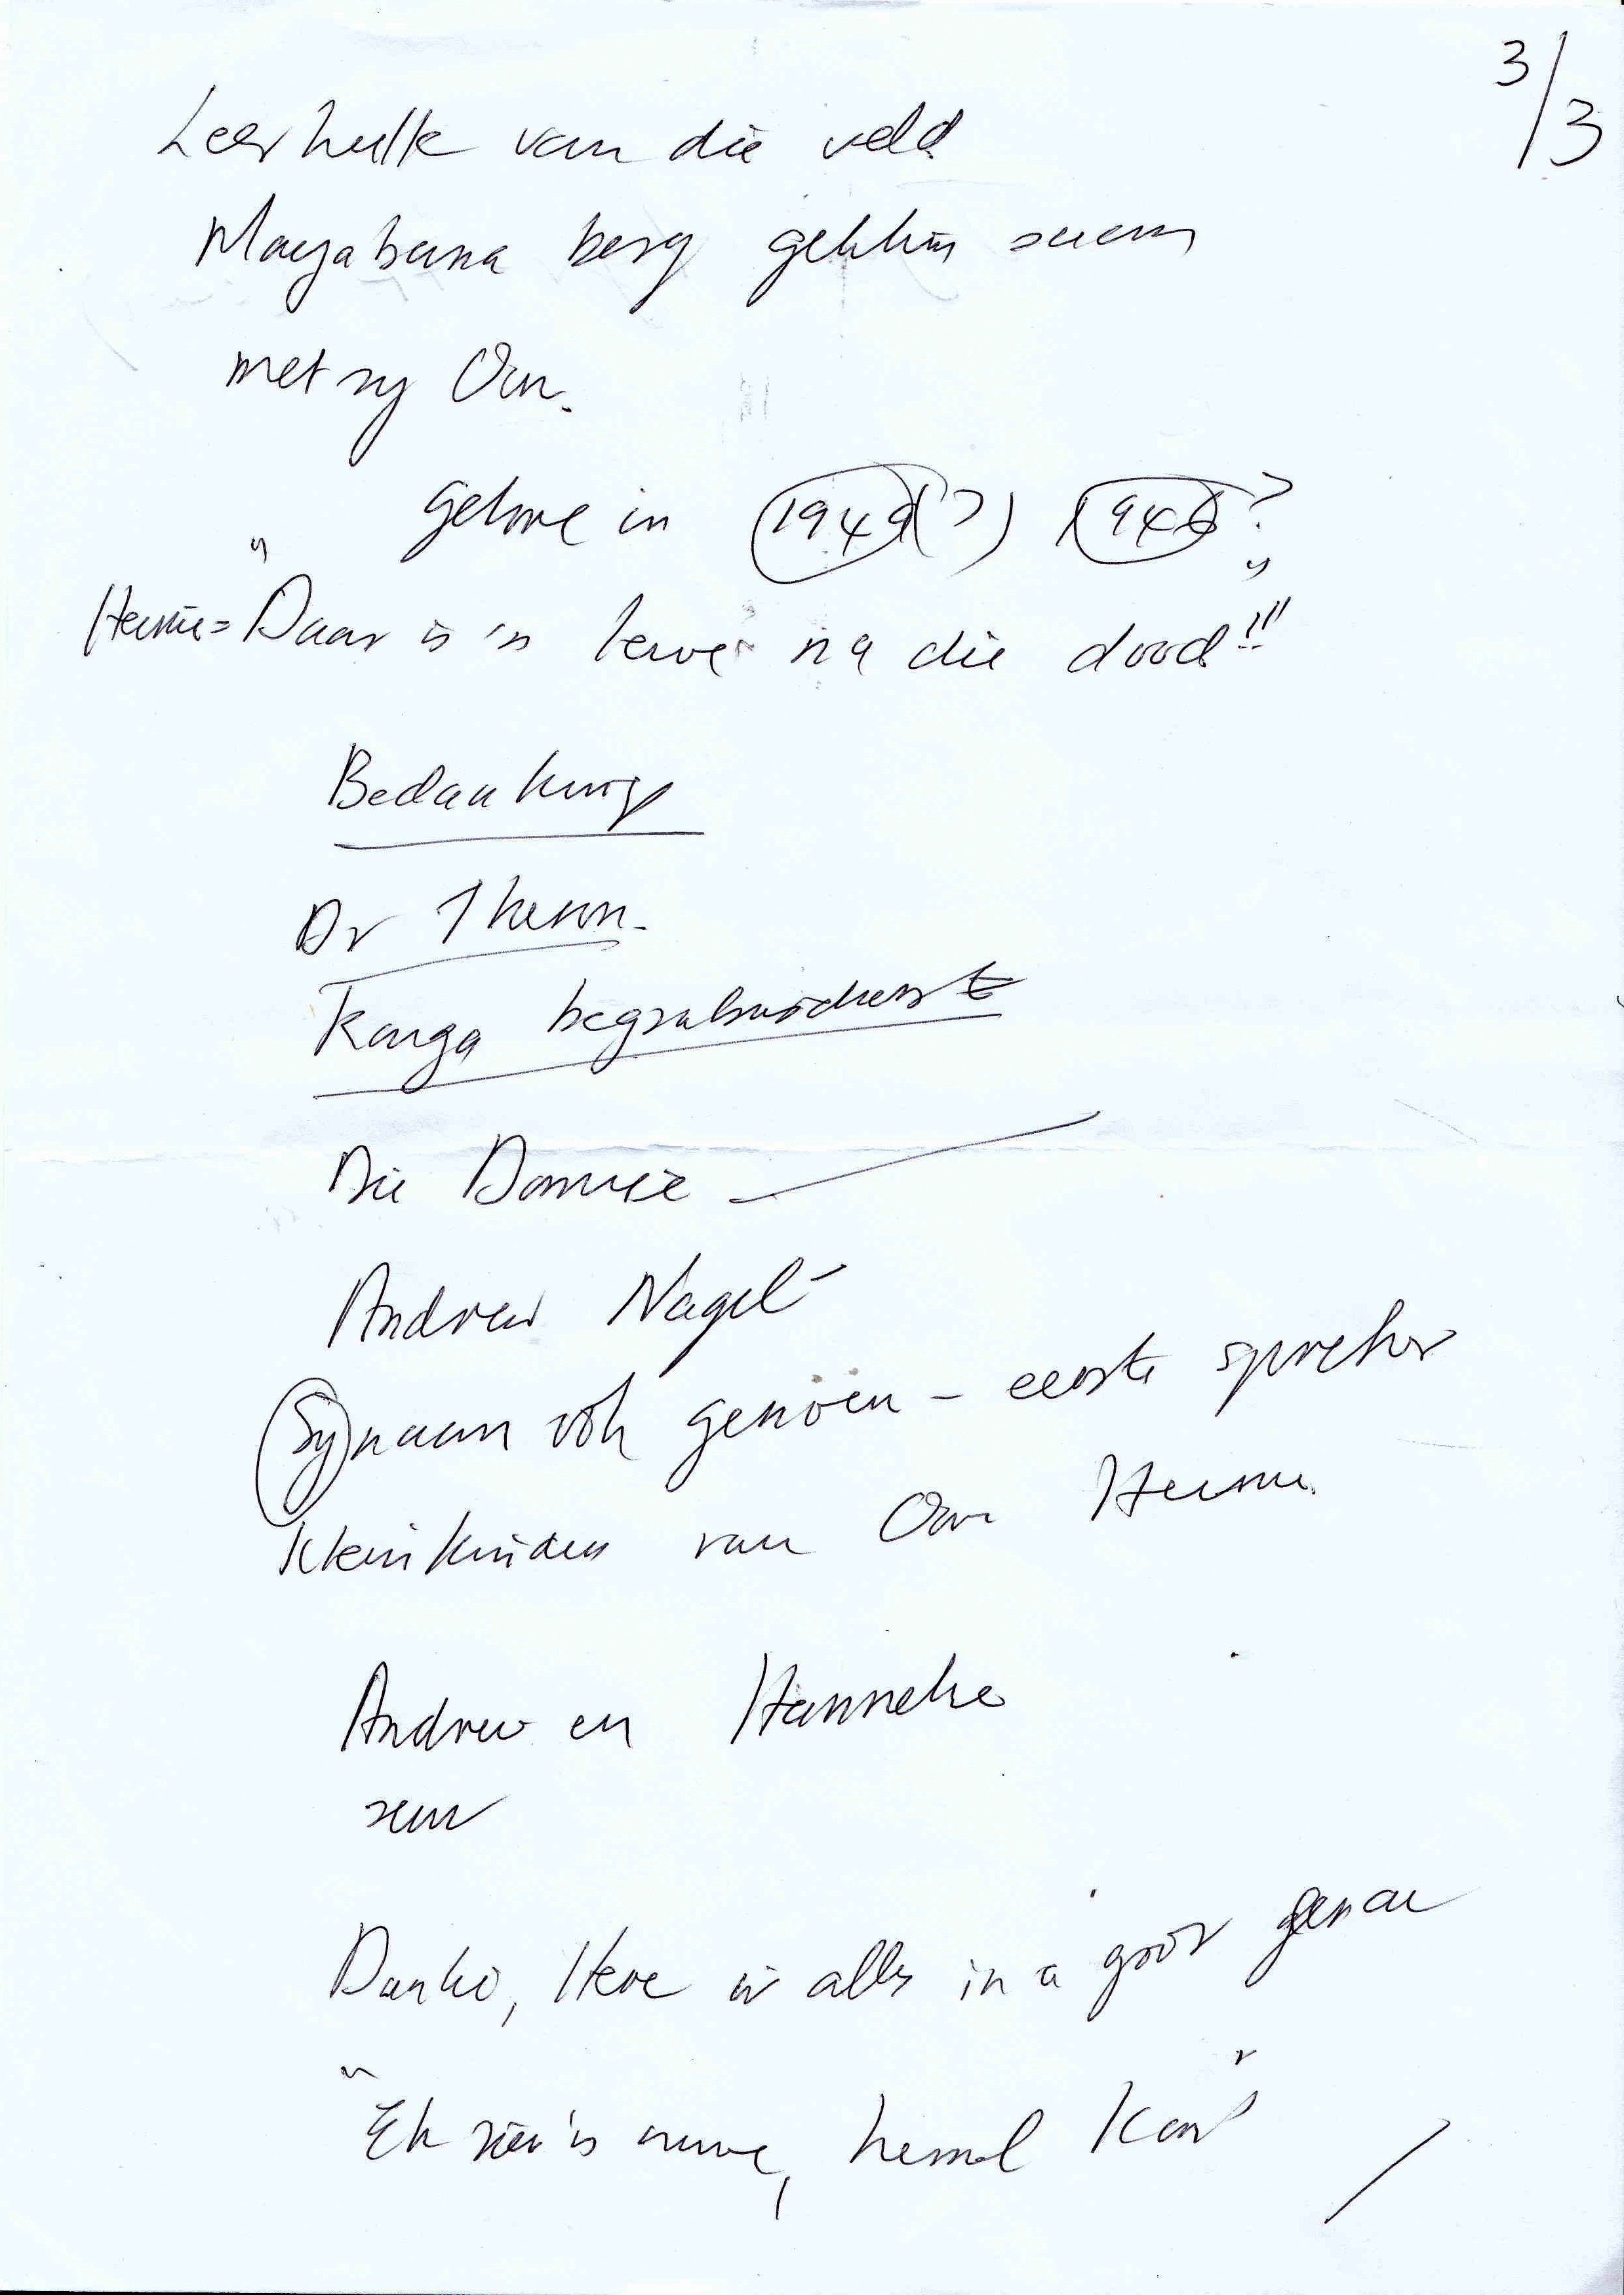 3/3
Leer hulle van die veld
Magabana berg geklim saam
met sy Oom.
gebore in 1949(?) 1946?
Hennie = "Daar is 'n lewe na die dood!!!"
Bedankings
Dr Theron.
Kanga begrafnisdienst
Die Dominee
Andrew Nagel
Sy naam ook genoem - eerste spreker
Kleinkinders van Oom Hennie.
Andrew en Hanneke
seun
Danke, Here vir alles in u groot genade
"Ek sien 'n nuwe, hemel kom"